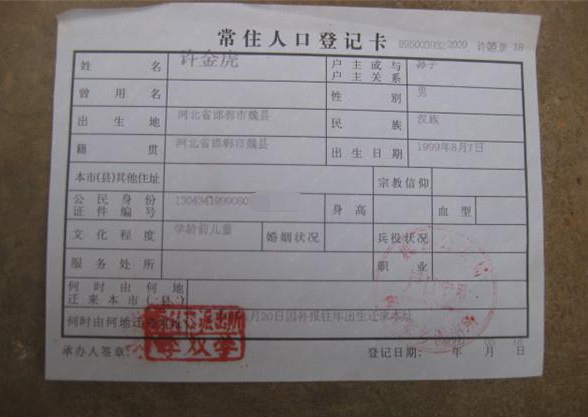 常住人口登记卡
姓名 许金虎 户主或与户主关系 孙子
曾用名 性别 男
出生地 河北省邯郸市魏县 民族 汉族
籍贯 河北省邯郸市魏县 出生日期 1999年8月7日
本市(县)其他住址 宗教信仰
公民身份证件编号 身高 血型
文化程度 学龄前儿童 婚姻状况 兵役状况
服务处所 职业
何时由何地迁来本市(县)
何时由何地迁来本址 月20日因补报往年出生迁来本址
承办人签章: 登记日期: 年 月 日